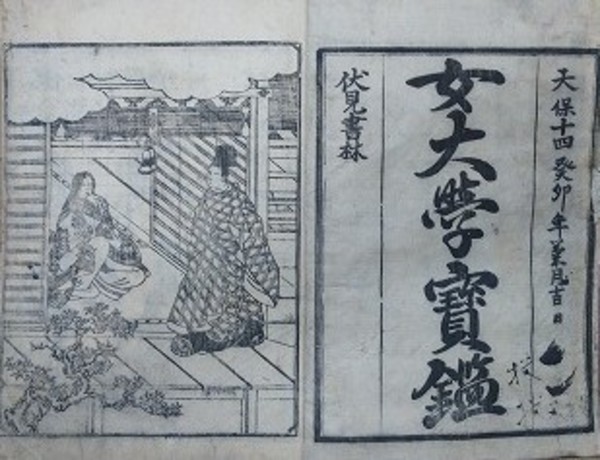 天保十四癸卯年葉月吉日
女大學寶鑑
伏見書林